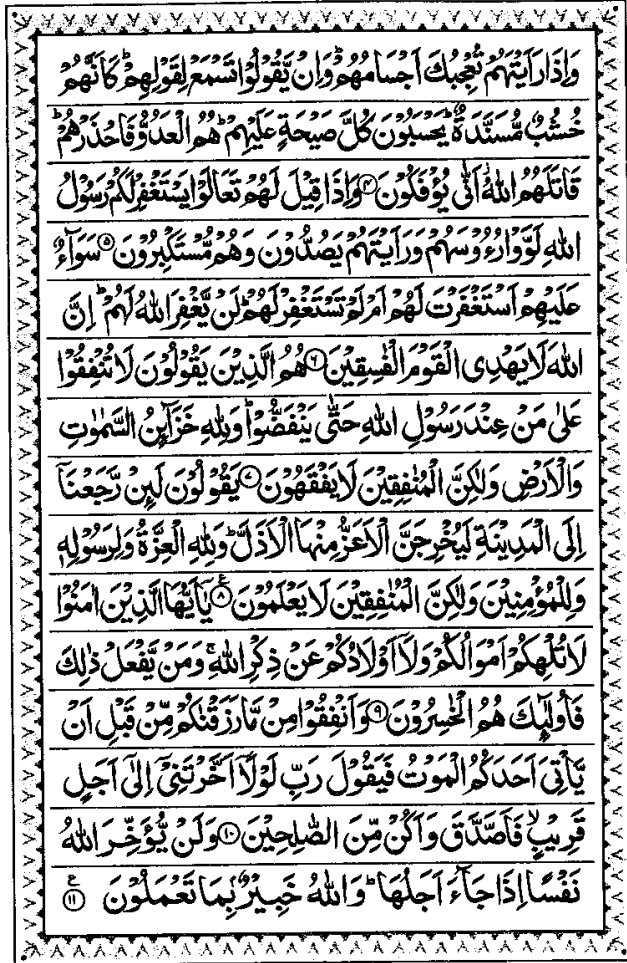 وَاِذَا رَاَيْتَهُمْ تُعْجِبُكَ اَجْسَامُهُمْ ؕ وَاِنْ يَّقُوْلُوْا تَسْمَعْ لِقَوْلِهِمْ ؕ كَاَنَّهُمْ
خُشُبٌ مُّسَنَّدَةٌ ؕ يَحْسَبُوْنَ كُلَّ صَيْحَةٍ عَلَيْهِمْ ؕ هُمُ الْعَدُوُّ فَاحْذَرْهُمْ ؕ
قَاتَلَهُمُ اللّٰهُ ؗ اَنّٰى يُؤْفَكُوْنَ ۴ وَاِذَا قِيْلَ لَهُمْ تَعَالَوْا يَسْتَغْفِرْ لَكُمْ رَسُوْلُ
اللّٰهِ لَوَّوْا رُءُوْسَهُمْ وَرَاَيْتَهُمْ يَصُدُّوْنَ وَهُمْ مُّسْتَكْبِرُوْنَ ۵ سَوَآءٌ
عَلَيْهِمْ اَسْتَغْفَرْتَ لَهُمْ اَمْ لَمْ تَسْتَغْفِرْ لَهُمْ ؕ لَنْ يَّغْفِرَ اللّٰهُ لَهُمْ ؕ اِنَّ
اللّٰهَ لَا يَهْدِى الْقَوْمَ الْفٰسِقِيْنَ ۶ هُمُ الَّذِيْنَ يَقُوْلُوْنَ لَا تُنْفِقُوْا
عَلٰى مَنْ عِنْدَ رَسُوْلِ اللّٰهِ حَتّٰى يَنْفَضُّوْا ؕ وَلِلّٰهِ خَزَآئِنُ السَّمٰوٰتِ
وَالْاَرْضِ وَلٰكِنَّ الْمُنٰفِقِيْنَ لَا يَفْقَهُوْنَ ۷ يَقُوْلُوْنَ لَئِنْ رَّجَعْنَاۤ
اِلَى الْمَدِيْنَةِ لَيُخْرِجَنَّ الْاَعَزُّ مِنْهَا الْاَذَلَّ ؕ وَلِلّٰهِ الْعِزَّةُ وَلِرَسُوْلِهٖ
وَلِلْمُؤْمِنِيْنَ وَلٰكِنَّ الْمُنٰفِقِيْنَ لَا يَعْلَمُوْنَ ۸ ع يٰۤاَيُّهَا الَّذِيْنَ اٰمَنُوْا
لَا تُلْهِكُمْ اَمْوَالُكُمْ وَلَاۤ اَوْلَادُكُمْ عَنْ ذِكْرِ اللّٰهِ ۚ وَمَنْ يَّفْعَلْ ذٰلِكَ
فَاُولٰٓئِكَ هُمُ الْخٰسِرُوْنَ ۹ وَاَنْفِقُوْا مِنْ مَّا رَزَقْنٰكُمْ مِّنْ قَبْلِ اَنْ
يَّاْتِىَ اَحَدَكُمُ الْمَوْتُ فَيَقُوْلَ رَبِّ لَوْلَاۤ اَخَّرْتَنِىْۤ اِلٰٓى اَجَلٍ
قَرِيْبٍ ۙ فَاَصَّدَّقَ وَاَكُنْ مِّنَ الصّٰلِحِيْنَ ۱۰ وَلَنْ يُّؤَخِّرَ اللّٰهُ
نَفْسًا اِذَا جَآءَ اَجَلُهَا ؕ وَاللّٰهُ خَبِيْرٌۢ بِمَا تَعْمَلُوْنَ ۱۱ ع